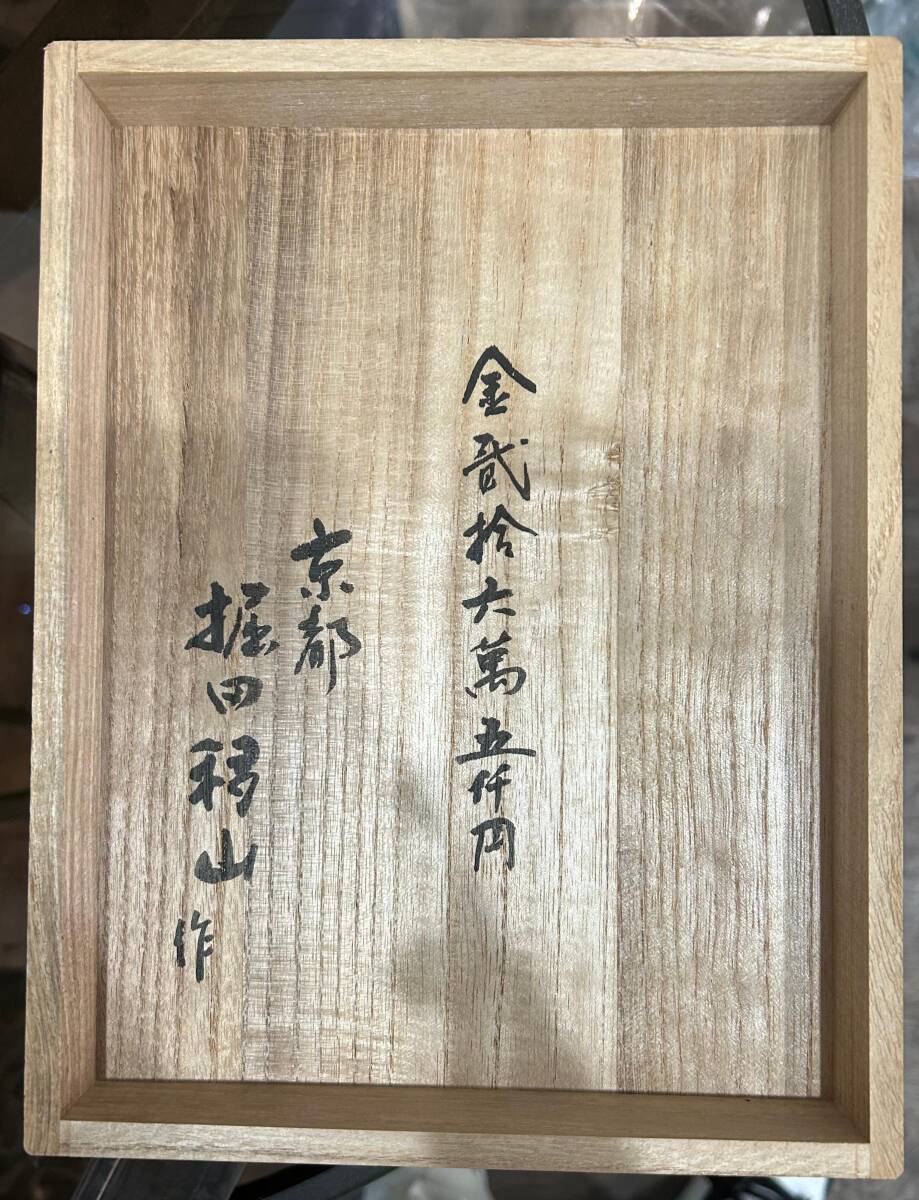 金弐拾六萬五仟円
京都
堀田穆山
作